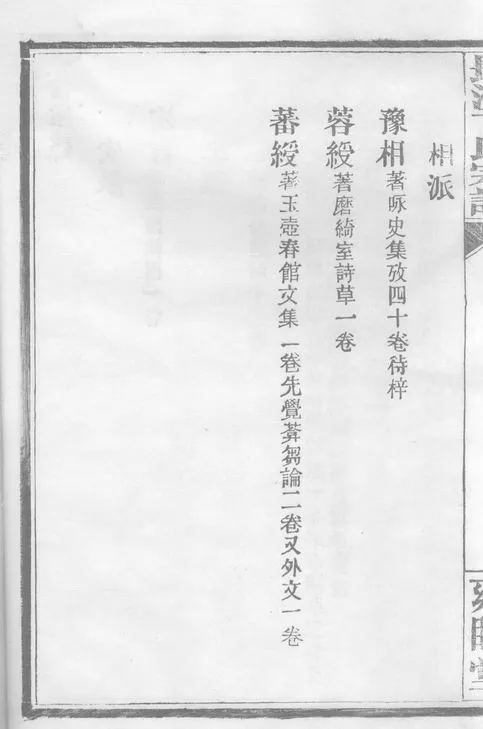 相派
豫相著咏史集攷四十卷待梓
蓉綬著磨綺室詩草一卷
蕃綬著玉壺春館文集一卷先覺蒭論二卷又外文一卷